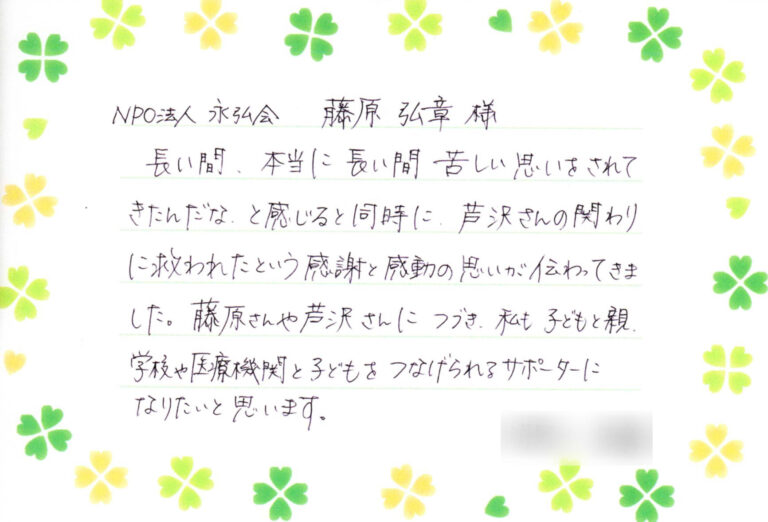 NPO法人 永弘会　藤原 弘章 様
長い間、本当に長い間 苦しい思いをされて
きたんだな、と感じると同時に、芦沢さんの関わり
に救われたという感謝と感動の思いが伝わってきま
した。藤原さんや芦沢さんに つづき、私も 子どもと親、
学校や医療機関と子どもを つなげられるサポーターに
なりたいと思います。